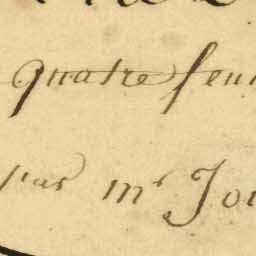 quatre feui
par mr Jou